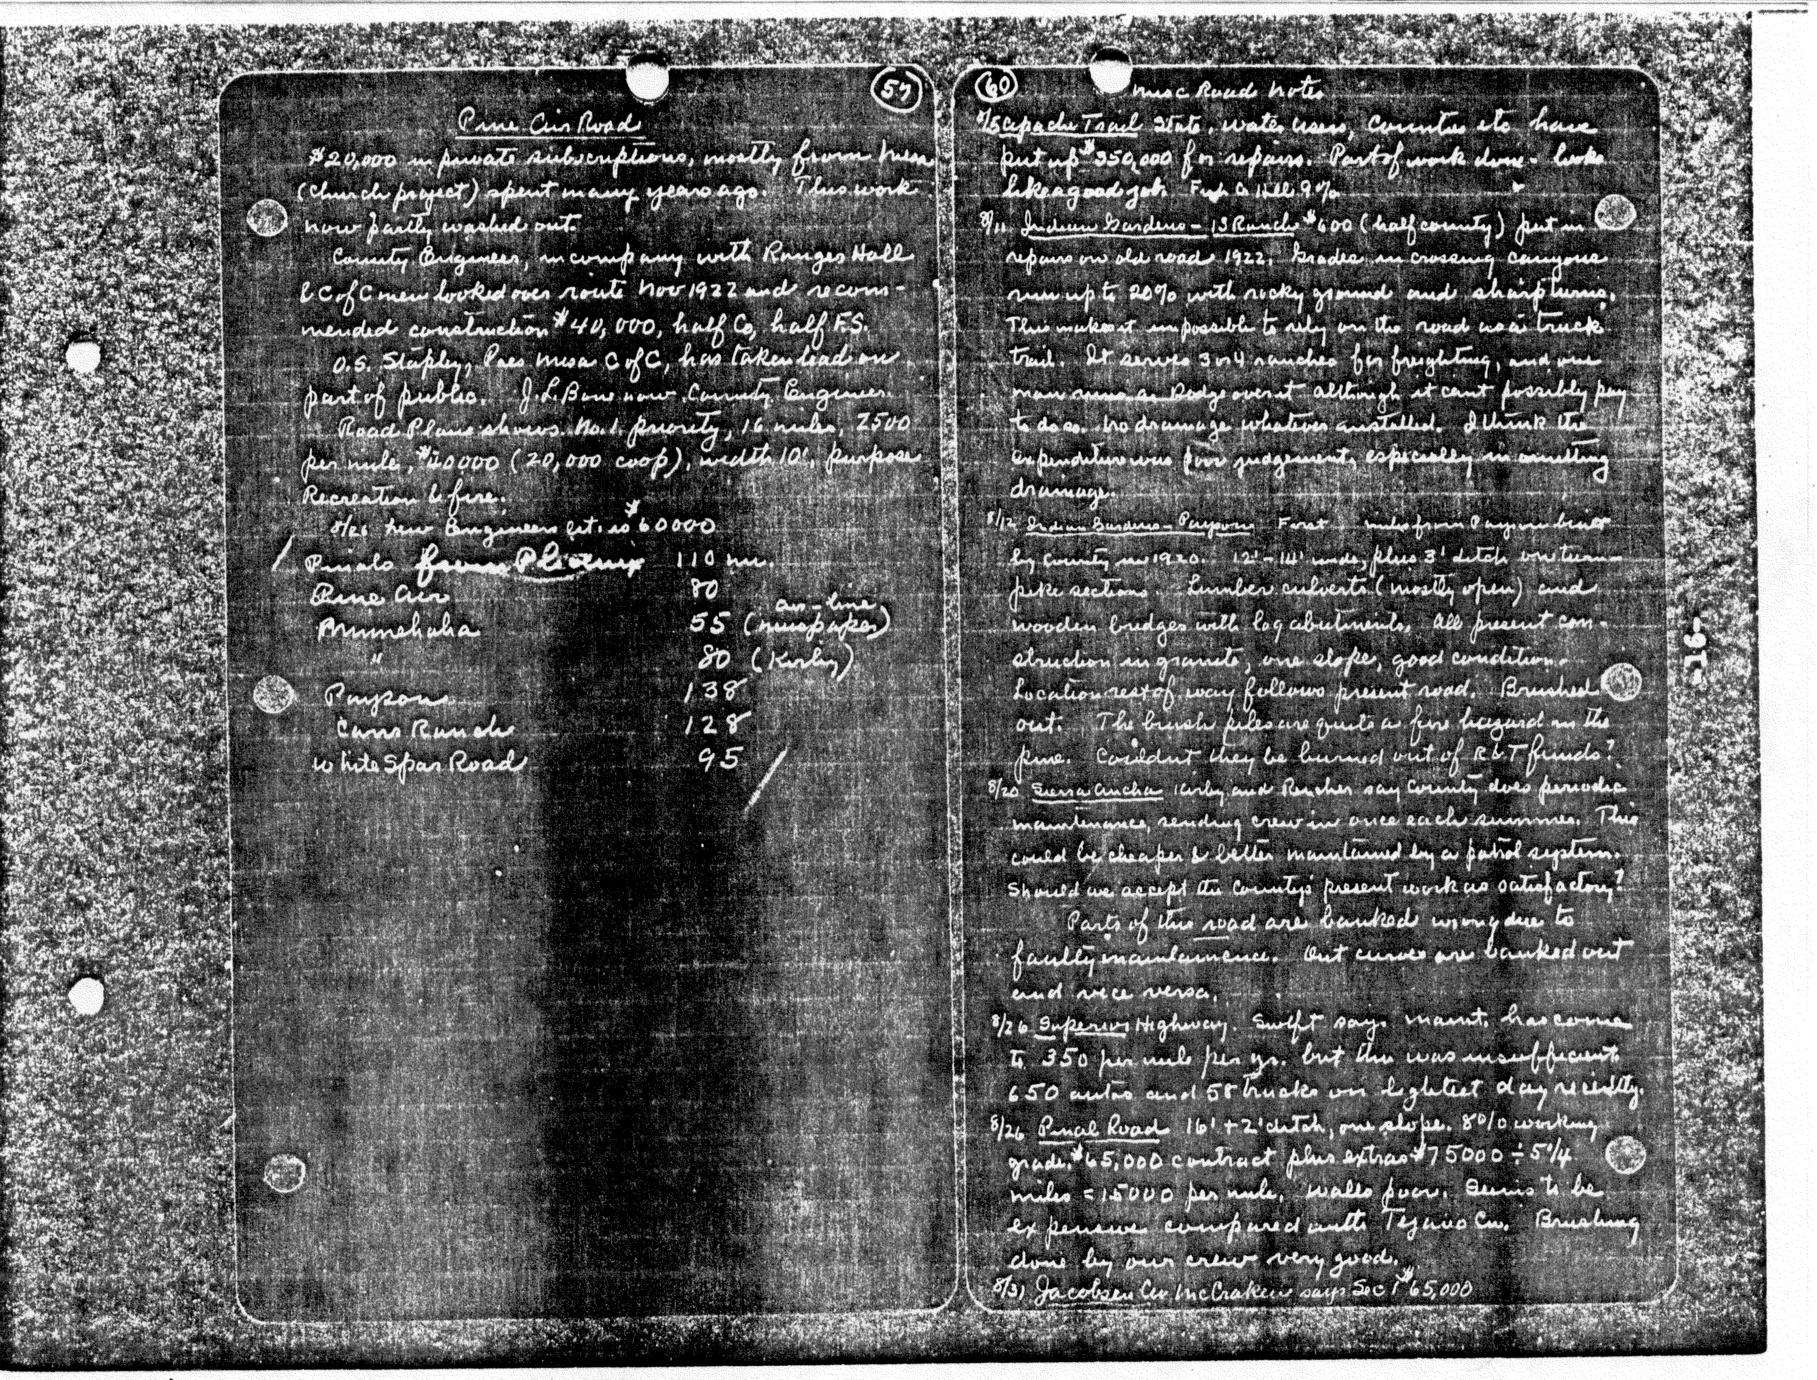 57
Pine Air Road
$20,000 in private subscriptions, mostly from Mesa
(Church project) spent many years ago. This work
now partly washed out.
County Engineer, in company with Ranger Hall
& C of C men looked over route Nov 1922 and recom-
mended construction $40,000, half Co, half F.S.
O.S. Stapley, Pres Mesa C of C, has taken lead on
part of public. J.L. Bone now County Engineer.
Road Plan shows No. 1 priority, 16 miles, 2500
per mile, $40000 (20,000 coop), width 10', purpose
Recreation & fire.
8/26 New Engineers est. is $60000
Pinals from Phoenix 110 mi.
Pine Air 80
Minnehaha 55 (air-line newspaper)
" 80 (Kirby)
Payson 138
Cans Ranch 128
White Spar Road 95
60
Misc Road Notes
Apache Trail State, water users, counties etc have
put up $350,000 for repairs. Part of work done - looks
like a good job. Hill 9%
8/11 Indian Gardens - 13 Ranch $600 (half county) put in
repairs on old road 1922. Grades in crossing canyons
run up to 20% with rocky ground and sharp turns.
This makes it impossible to rely on the road as a truck
trail. It serves 3 or 4 ranches for freighting, and one
man runs a Dodge over it although it cant possibly pay
to do so. No drainage whatever installed. I think the
expenditure was poor judgement, especially in omitting
drainage.
8/12 Indian Gardens - Payson First miles from Payson built
by County in 1920. 12'-14' wide, plus 3' ditch on turn-
pike sections. Lumber culverts (mostly open) and
wooden bridges with log abutments. All present con-
struction in granite, one slope, good condition.
Location rest of way follows present road. Brushed
out. The brush piles are quite a fire hazard in the
pine. Couldn't they be burned out of R&T funds?
8/20 Sierra Ancha Kirby and Rencher say County does periodic
maintenance, sending crew in once each summer. This
could be cheaper & better maintained by a patrol system.
Should we accept the County's present work as satisfactory?
Parts of this road are banked wrong due to
faulty maintainence. Out curves are banked out
and vice versa.
8/26 Superior Highway. Swift says maint. has come
to 350 per mile per yr. but this was insufficient
650 autos and 58 trucks on lightest day recently.
8/26 Pinal Road 16' + 2' ditch, one slope. 8% working
grade. $65,000 contract plus extras $75000 ÷ 5 1/4
miles = 15000 per mile. Walls poor. Seems to be
expensive compared with Tejano Cn. Brushing
done by our crew very good.
8/31 Jacobsen Cn McCraken says Sec 1 $65,000
-16-